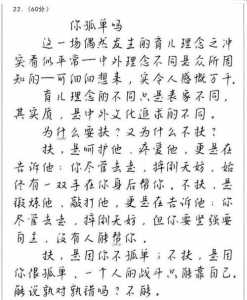 22. (60分)
你孤单吗
这一场偶然发生的育儿理念之冲
突看似平常—中外理念不同是众所周
知的—可细细想来,实令人感慨万千。
育儿理念的不同只是表象不同,
其实质,是中外文化追求的不同。
为什么要扶?又为什么不扶?
扶,是呵护他,疼爱他,更是在
告诉他:你尽管去走,摔倒无妨,始
终有一双手在你身后帮你。不扶,是
锻炼他,敲打他,更是在告诉他:你
尽管去走,摔倒无妨,但你要坚强要
自立,没有人能帮你。
扶,是因你不孤单;不扶,是因
你很孤单,一个人的战斗只能靠自己。
能说孰对孰错吗?不能。